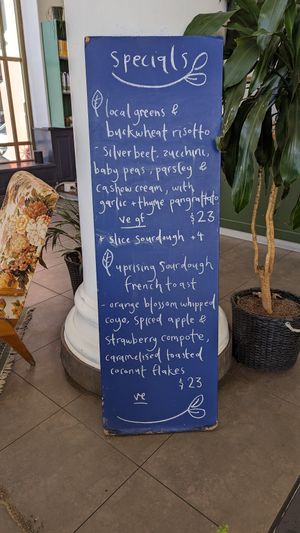 specials
local greens &
buckwheat risotto
- silverbeet, zucchini,
baby peas, parsley &
cashew cream, with
garlic + thyme pangrattato
ve gf $23
* slice sourdough +4
uprising sourdough
french toast
- orange blossom whipped
coyo, spiced apple &
strawberry compote,
caramelised toasted
coconut flakes
$23
ve